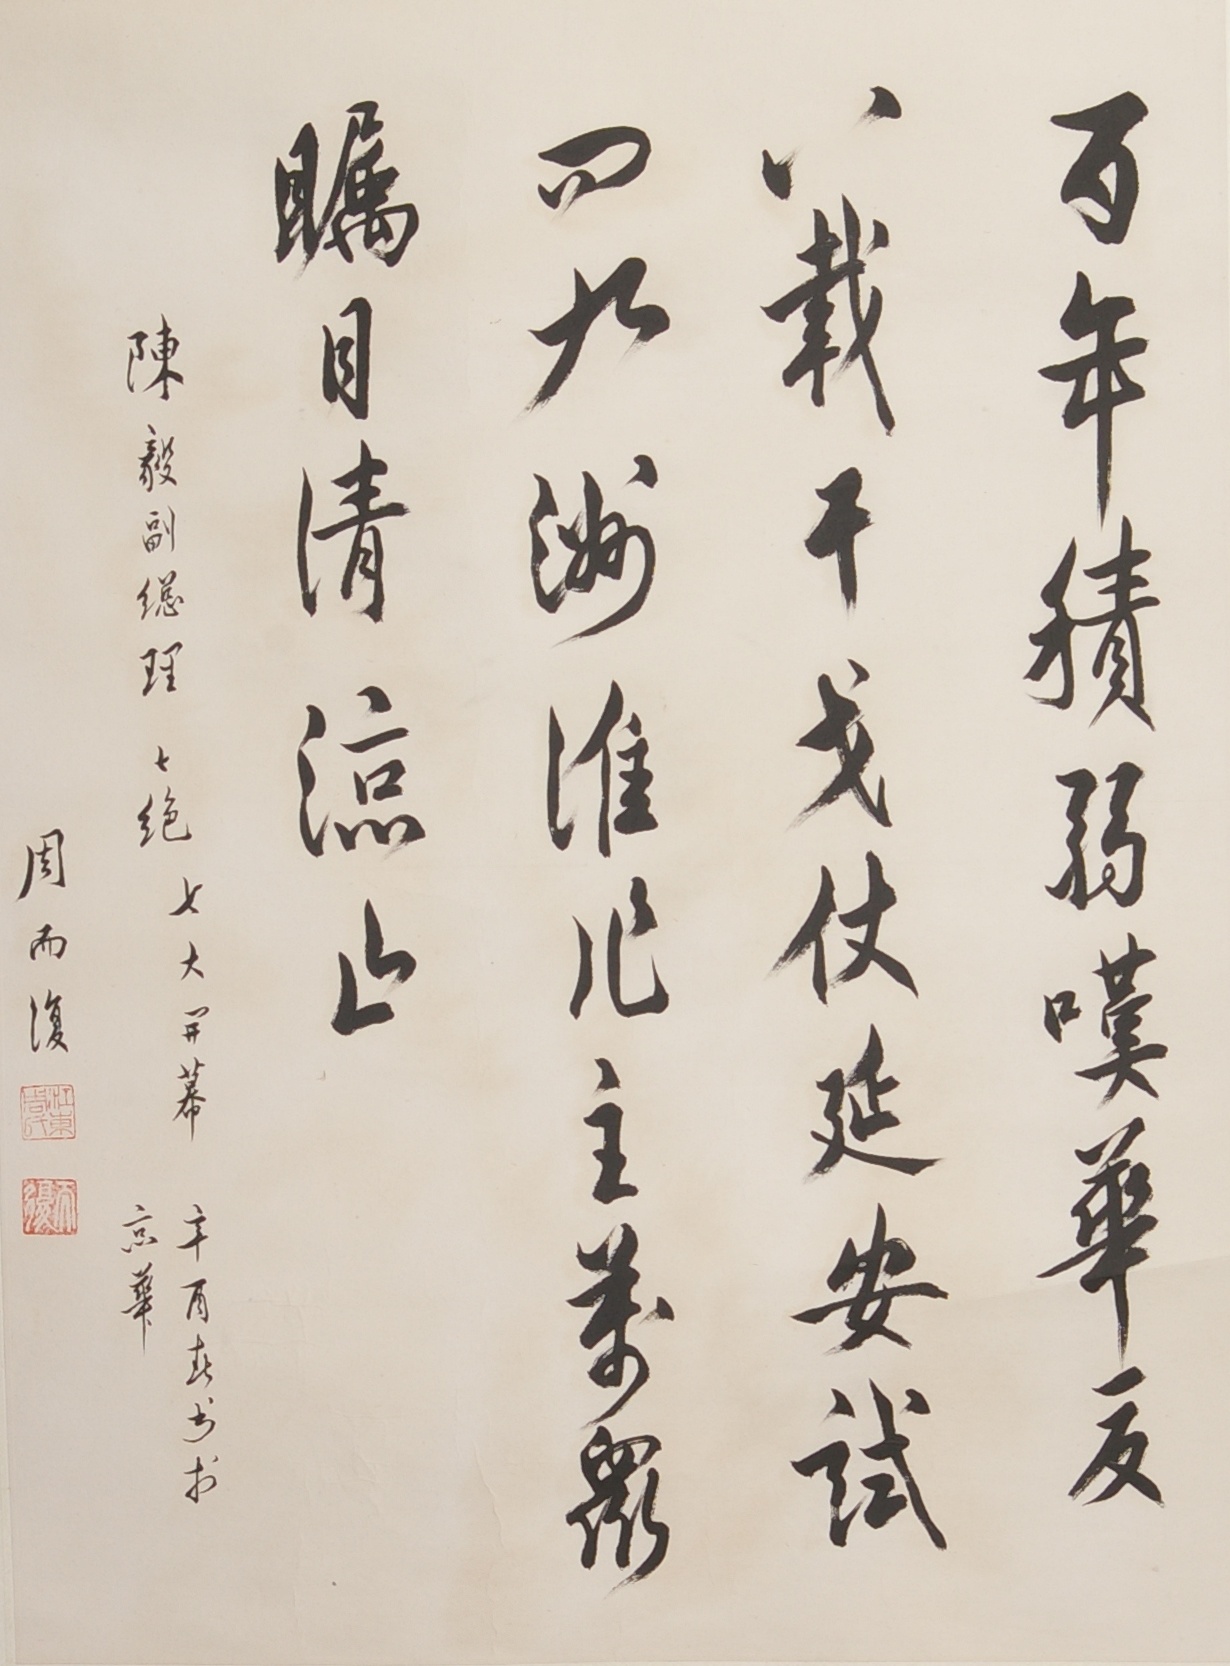 百年積弱嘆華夏
八載干戈仗延安試
問九洲誰作主萬眾
矚目清涼山
陳毅副總理七絕 七大開幕 辛酉春书於
京華
周而復
江東周氏
而復